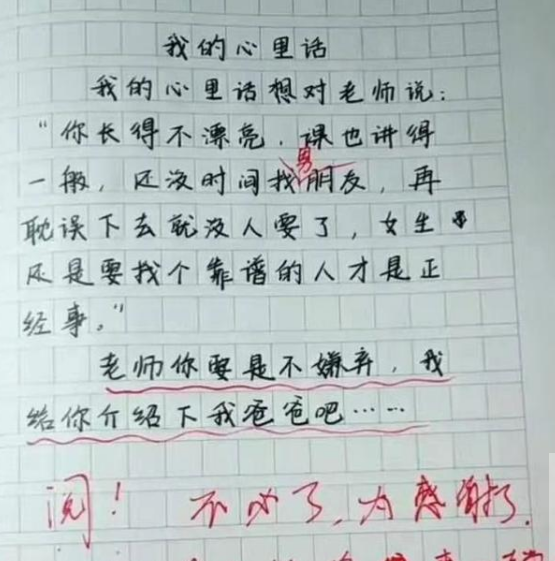 我的心里话
我的心里话想对老师说：
“你长得不漂亮，课也讲得
男
一般，还没时间找朋友，再
耽误下去就没人要了，女生
还是要找个靠谱的人才是正
经事。”
老师你要是不嫌弃，我
给你介绍下我爸爸吧……
阅！ 不必了，为感谢